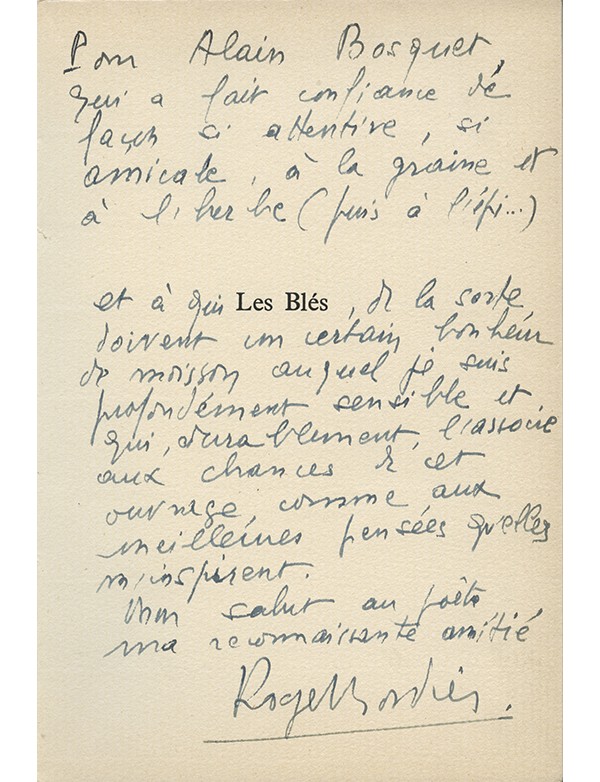 Pour Alain Bosquet,
qui a fait confiance de
façon si attentive, si
amicale, à la graine et
à l'herbe (puis à l'épi...)
et à qui Les Blés, de la sorte
doivent un certain bonheur
de moisson auquel je suis
profondément sensible et
qui, durablement, l'associe
aux chances de cet
ouvrage, comme aux
meilleures pensées qu'elles
m'inspirent.
Mon salut au poète
ma reconnaissante amitié
Roger Bordier.